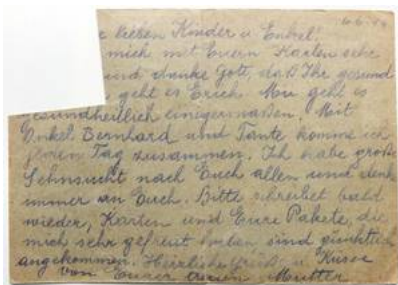 e lieben Kinder u. Enkel!
mich mit Euern Karten sehr
und danke Gott, daß Ihr gesund
geht es Erich. Mir geht es
gesundheitlich einigermaßen. Mit
Onkel Bernhard und Tante komme ich
jeden Tag zusammen. Ich habe große
Sehnsucht nach Euch allen und denke
immer an Euch. Bitte schreibet bald
wieder, Karten und Eure Pakete, die
mich sehr gefreut haben sind pünktlich
angekommen. Herzliche Grüße u. Küsse
von Eurer Mutter